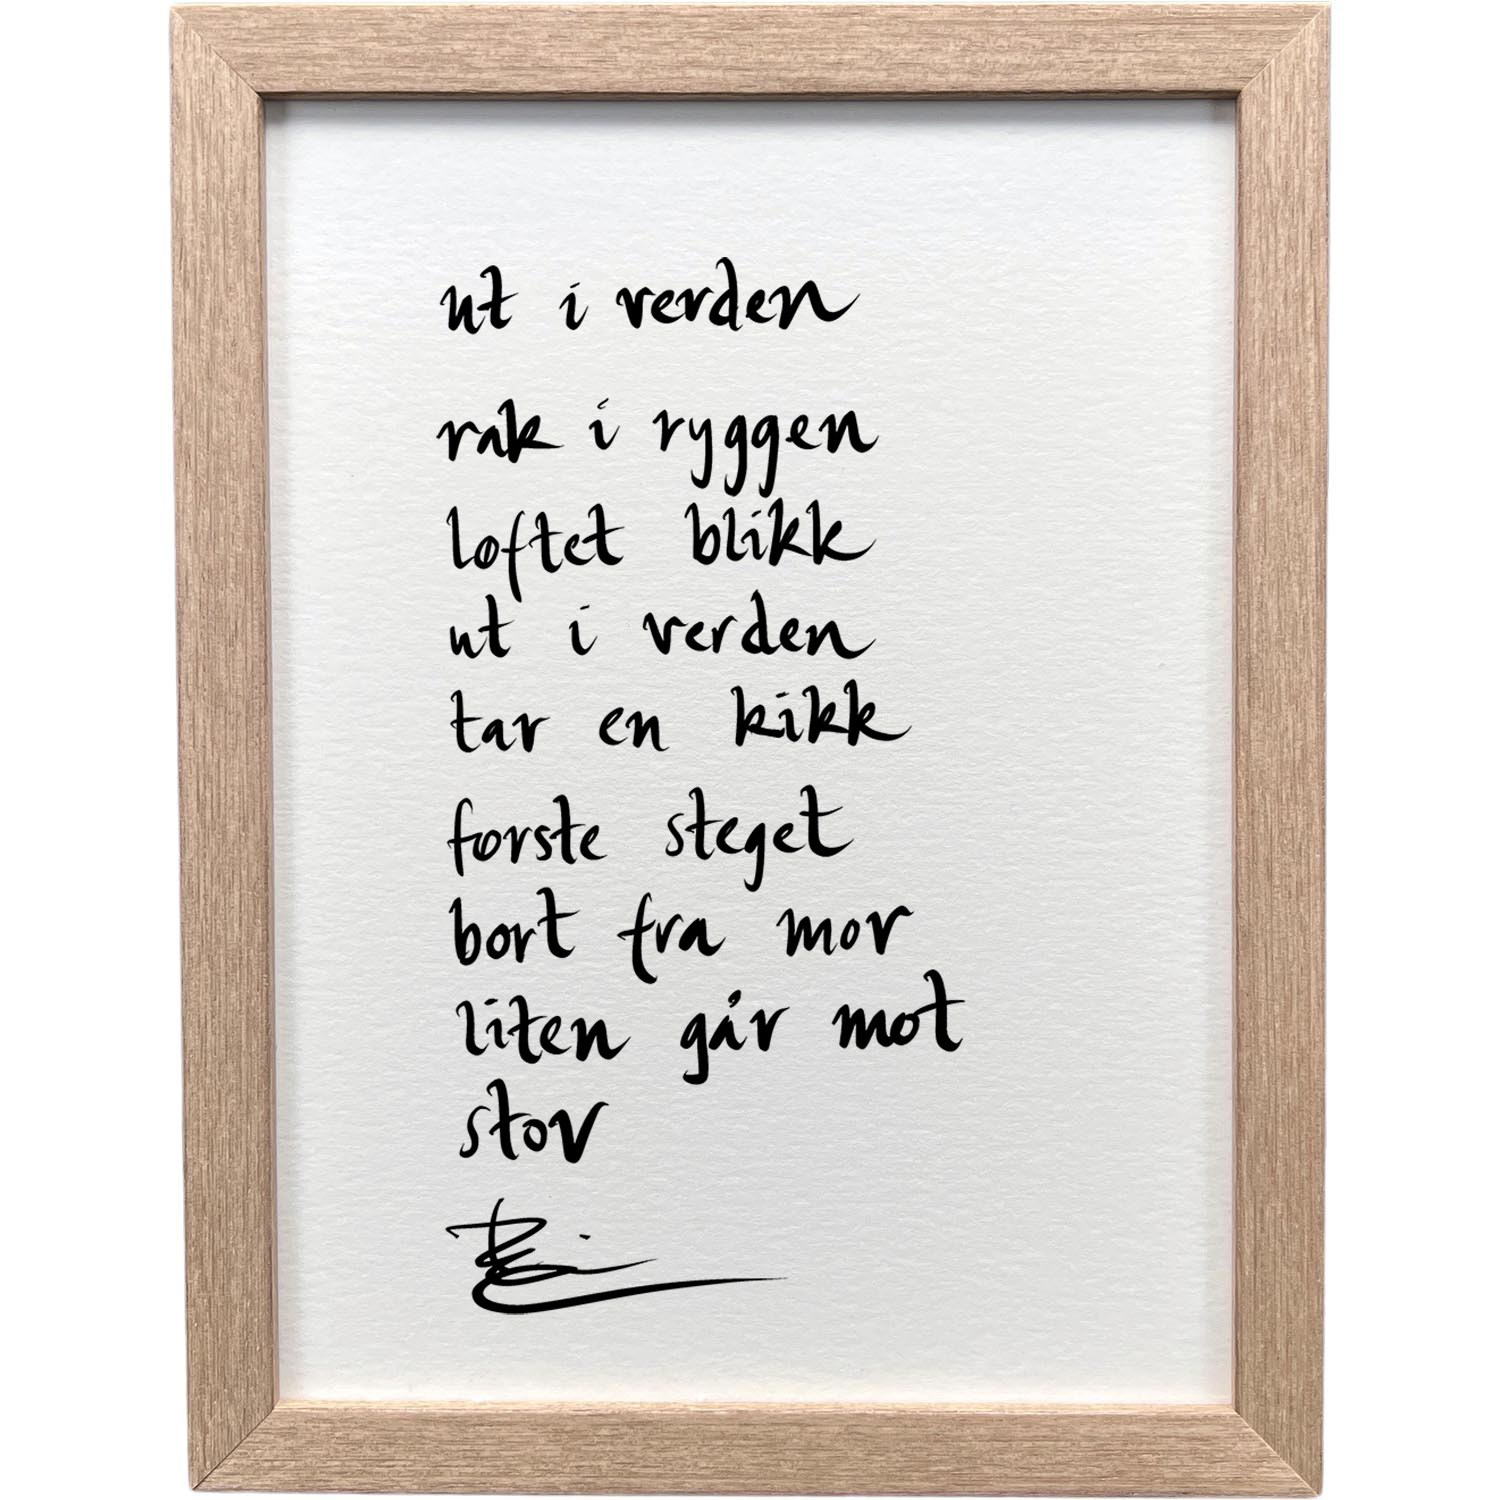 ut i verden
rak i ryggen
løftet blikk
ut i verden
tar en kikk
første steget
bort fra mor
liten går mot
stor